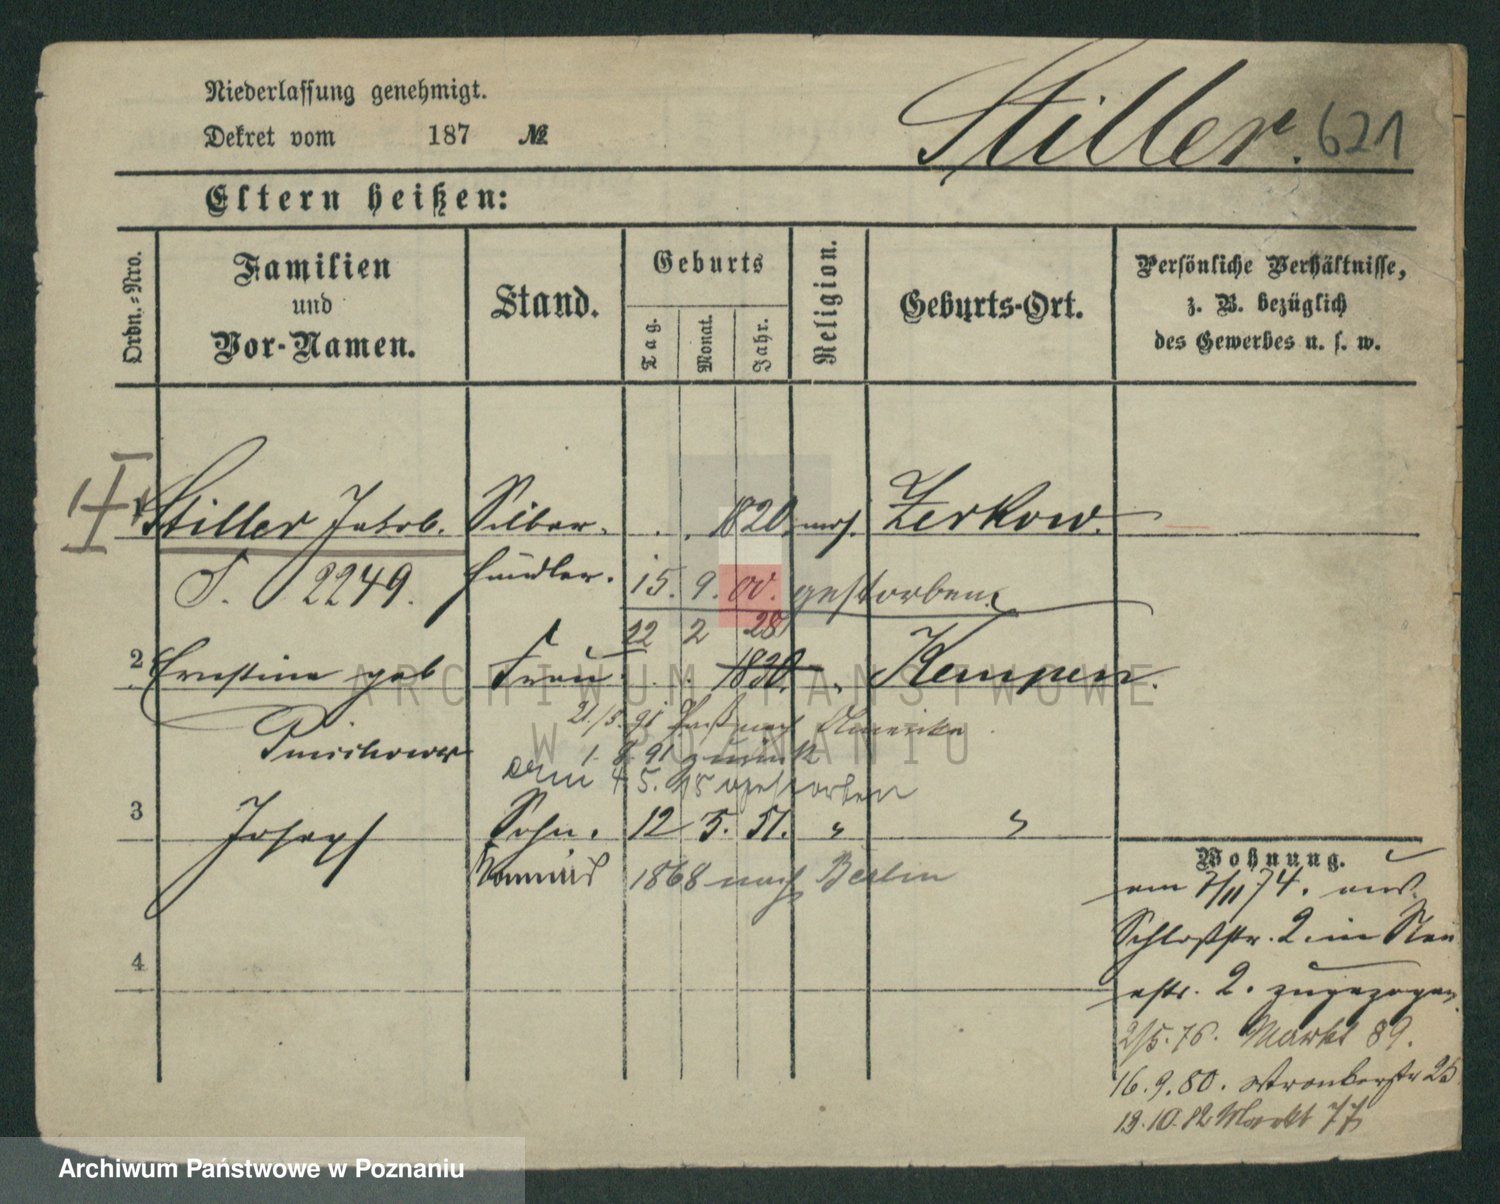 Niederlassung genehmigt.
Dekret vom 187 №
Stiller. 621
Eltern heißen:
Ordn.-Nro.
Familien
und
Vor-Namen.
Stand.
Geburts
Tag.
Monat.
Jahr.
Religion.
Geburts-Ort.
Persönliche Verhältnisse,
z. B. bezüglich
des Gewerbes u. s. w.
1 Stiller Jakob. Silber- 1820 mos. Zerkow.
S. 2249. händler. 15. 9. 00. gestorben.
22 2 28
2 Ernestine geb Frau. 1830. " Kempen.
21./5. 91 Paß nach Amerika
1. 8. 91 zurück
am 4 5. gestorben
3 Joseph Sohn. 12 5. 51. " "
1868 nach Berlin
4
Wohnung.
am 7/11 74. aus
Schloßstr. 2 in Neu
estr. 2. zugezogen.
2/5. 76. Markt 89.
16. 9. 80. Wronkerstr 25
13. 10. 82 Markt 77
ARCHIWUM PAŃSTWOWE
W POZNANIU
Archiwum Państwowe w Poznaniu